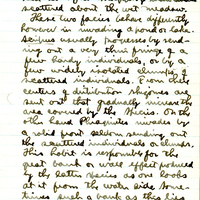 scattered about the wet meadow.
These two facies behave differently
however in invading a pond or lake.
usually progresses by send-
ing out a very thin fringe of a
few hardy individuals, or by a
few widely isolated clumps of
scattered individuals. From their
centers of distribution rhizomes are
sent out that gradually increase the
area covered by the species. On the
other hand Phragmites invades by
a solid front seldom sending out
the scattered individuals or clumps.
This habit is responsible for the
great bank or wall effect produced
by the latter species as one looks
at it from the water side. Some-
times such a bank as this lies